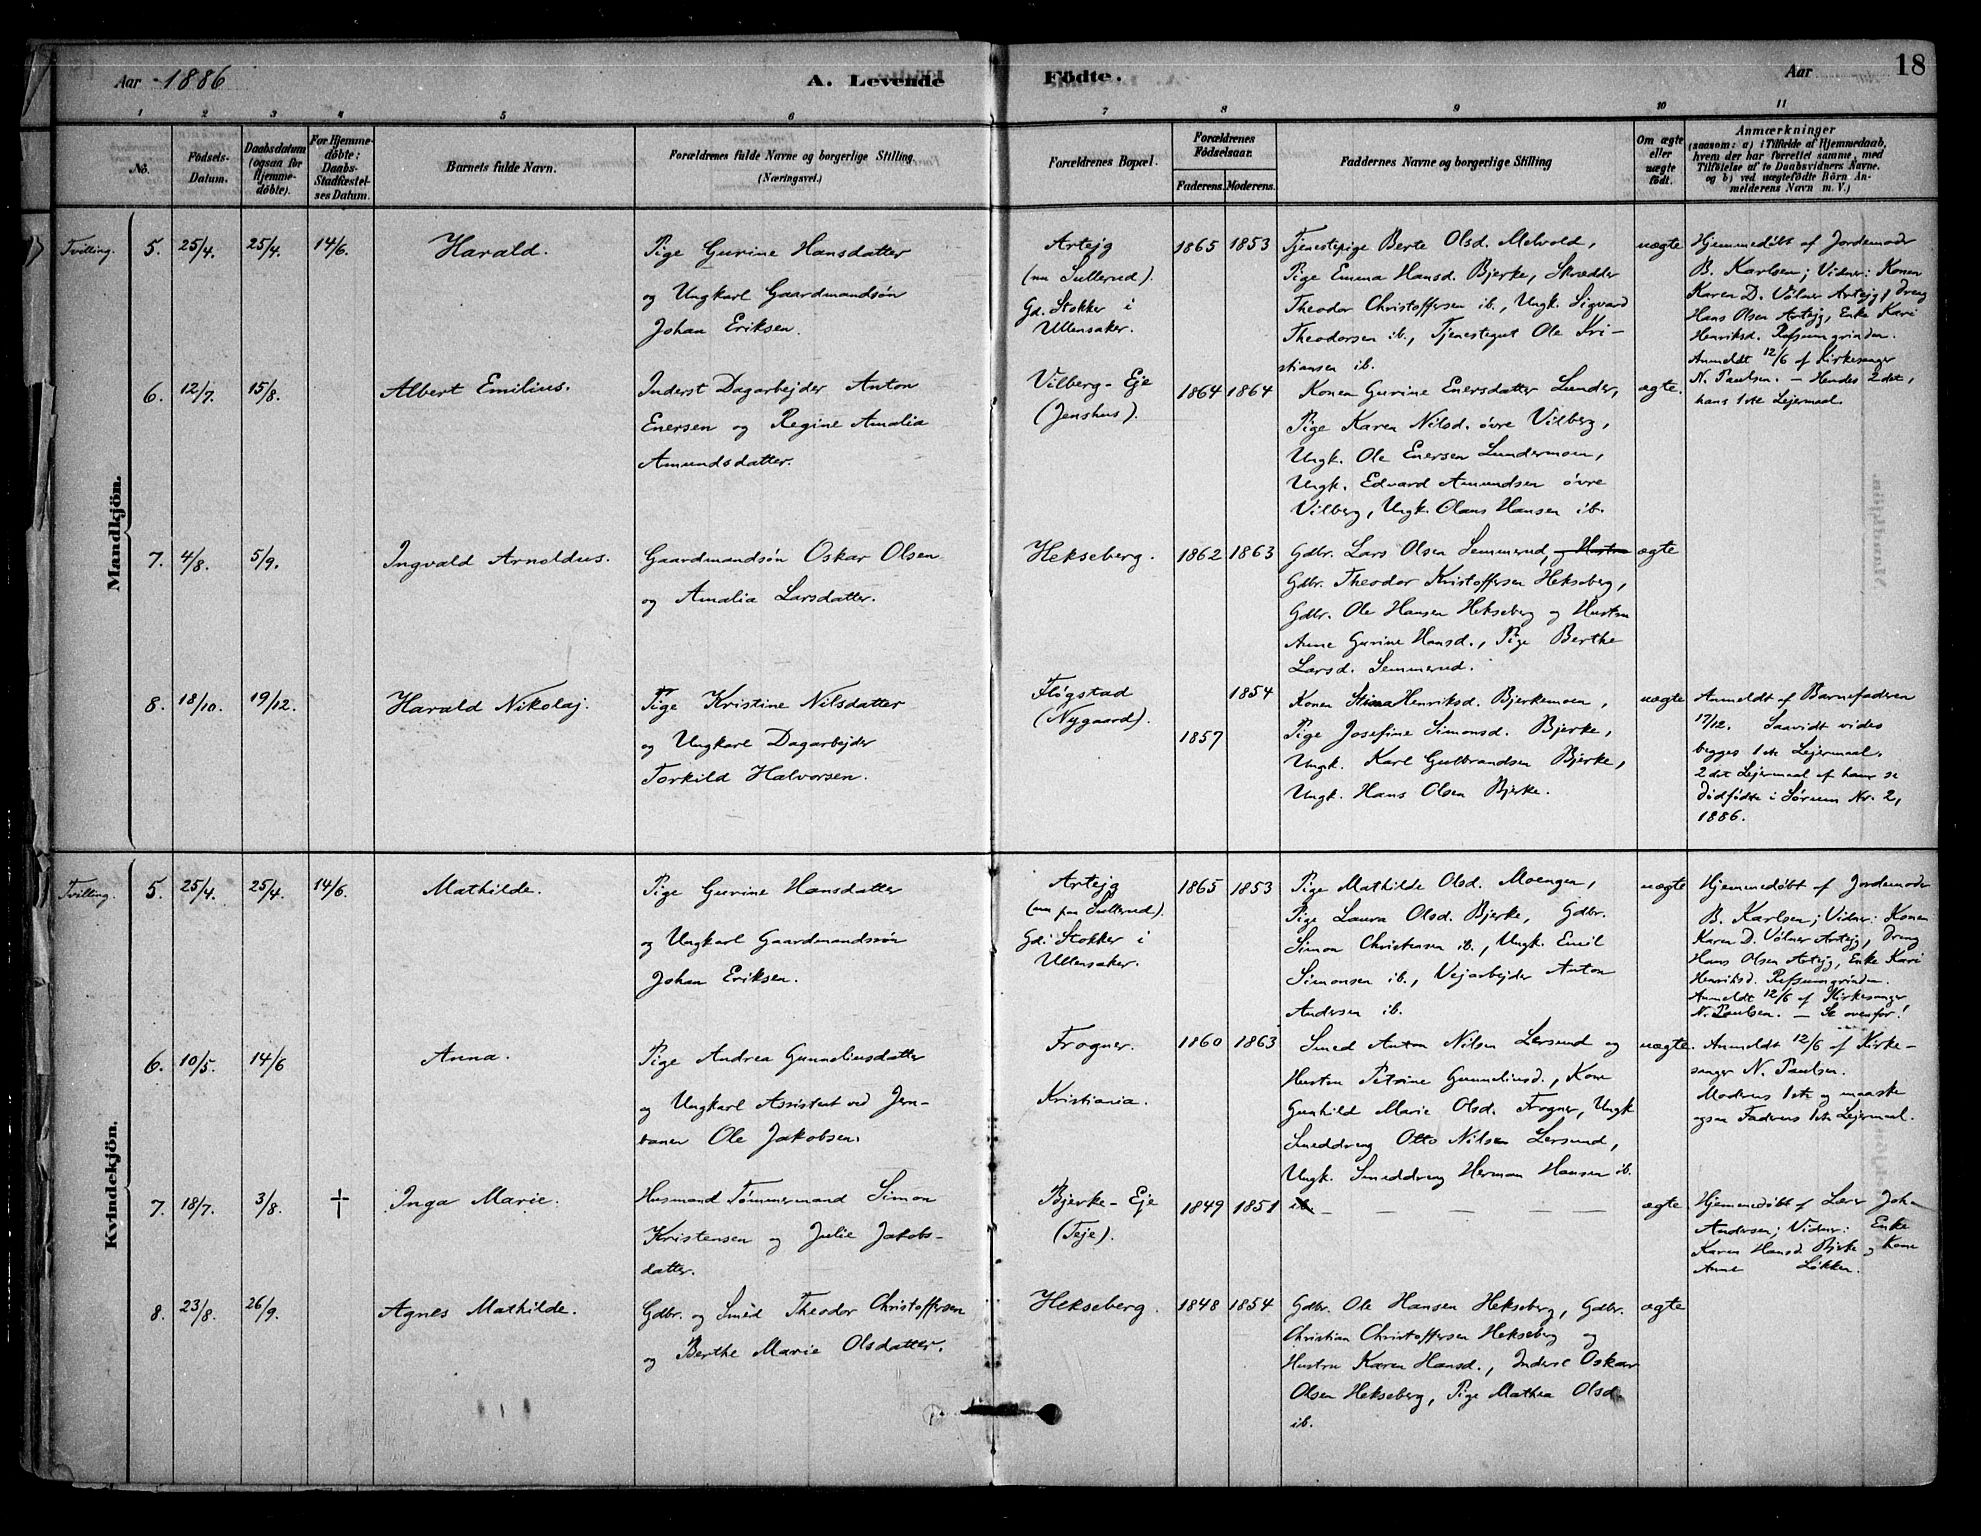 Aar 1886
A. Levende
Födte.
Aar
18
1 2 3 4 5 6 7 8 9 10 11
No.
Födsels-
Datum.
Daabsdatum
(ogsaa for
Hjemme-
döbte).
For Hjemme-
döbte:
Daabs-
Stadfæstel-
ses Datum.
Barnets fulde Navn.
Forældrenes fulde Navne og borgerlige Stilling.
(Næringsvei.)
Forældrenes Bopæl.
Forældrenes
Födselsaar.
Faderens. Moderens.
Faddernes Navne og borgerlige Stilling
Om ægte
eller
uægte
födt.
Anmærkninger
(saasom: a) i Tilfælde af Hjemmedaab,
hvem der har forrettet samme, med
Tilföielse af to Daabsvidners Navne.
og b) ved uægtefödte Börn An-
melderens Navn m. V.)
Mandkjön.
Tvilling. 5. 25/4. 25/4. 14/6. Harald.
Pige Gurine Hansdatter
og Ungkarl Gaardmandsön
Johan Eriksen.
Artejg
(nu Sullerud).
Gd. Stokker i
Ullensaker.
1865 1853
Tjenestepige Berte Olsd. Melvold,
Pige Emma Hansd. Bjerke, Skrædder
Theodor Christoffersen ib., Ungk. Sigvard
Theodorsen ib., Tjenestegut Ole Kri-
stiansen ib.
uægte
Hjemmedøbt af Jordemodr
B. Karlsen; Vidner: Konen
Karen D. Völner Artejg, Dreng
Hans Olsen Artejg, Enke Kari
Henriksd. Refsumgrinden.
Anmeldt 12/6 af Kirkesanger
N. Paulsen. — Hendes 2det,
hans 1ste Lejermaal.
6. 12/7. 15/8. Albert Emilius.
Inderst Dagarbejder Anton
Enersen og Regine Amalia
Amundsdatter.
Vilberg-Eje
(Jenshus).
1864 1864
Konen Gurine Enersdatter Lunder,
Pige Karen Nilsd. övre Vilberg,
Ungk. Ole Enersen Lundermoen,
Ungk. Edvard Amundsen övre
Vilberg, Ungk. Olaus Hansen ib.
ægte.
7. 4/8. 5/9. Ingvald Arnoldus.
Gaardmandsön Oskar Olsen
og Amalia Larsdatter.
Hekseberg.
1862 1863
Gdbr. Lars Olsen Semmerud, og Hustru
Gdbr. Theodor Kristoffersen Hekseberg,
Gdbr. Ole Hansen Hekseberg og Hustru
Anne Gurine Hansd., Pige Berthe
Larsd. Semmerud.
ægte
8. 18/10. 19/12. Harald Nikolaj.
Pige Kristine Nilsdatter
og Ungkarl Dagarbejder
Torkild Halvorsen.
Fløgstad
(Nygaard).
1857 1854
Konen Stina Henriksd. Bjerkemoen,
Pige Josefine Simonsd. Bjerke,
Ungk. Karl Gulbrandsen Bjerke,
Ungk. Hans Olsen Bjerke.
uægte
Anmeldt af Barnefaderen
17/12. Saavidt vides
begges 1ste Lejermaal.
2det Lejermaal af ham se
Dødfødte i Sørum Nr. 2,
1886.
Kvindekjön.
Tvilling. 5. 25/4. 25/4. 14/6. Mathilde.
Pige Gurine Hansdatter
og Ungkarl Gaardmandssön
Johan Eriksen.
Artejg
(nu paa Sullerud).
Gd. Stokker i
Ullensaker.
1865 1853
Pige Mathilde Olsd. Moengen,
Pige Laura Olsd. Bjerke, Gdbr.
Simon Christensen ib., Ungk. Emil
Simonsen ib., Vejarbejder Anton
Andersen ib.
uægte
Hjemmedøbt af Jordemoder
B. Karlsen; Vidner: Konen
Karen D. Völner Artejg, Dreng
Hans Olsen Artejg, Enke Kari
Henriksd. Refsumgrinden.
Anmeldt 12/6 af Kirkesanger
N. Paulsen. — Se ovenfor!
6. 10/5. 14/6 Anna.
Pige Andrea Gunneliusdatter
og Ungkarl Assistent ved Jern-
banen Ole Jakobsen.
Frogner.
Kristiania.
1860 1863
Smed Anton Nilsen Lersund og
Hustru Petrine Gunneliusd., Kone
Gunhild Marie Olsd. Frogner, Ungk
Smeddreng Otto Nilsen Lersund,
Ungk. Smeddreng Herman Hansen ib.
uægte.
Anmeldt 12/6 af Kirke-
sanger N. Paulsen.
Moderens 1ste og maaske
ogsaa Faderens 1ste Lejermaal.
7. 18/7. 3/8. † Inga Marie.
Husmand Tømmermand Simon
Kristensen og Julie Jakobs-
datter.
Bjerke-Eje
(Teje).
1849 1851
ib. — — — — —
ægte
Hjemmedøbt af Lærer Joh.
Andersen; Vidner: Enke
Karen Hansd. Bjerke og Kone
Anne Løkken.
8. 23/8. 26/9. Agnes Mathilde.
Gdbr. og Smed Theodor Christoffersen
og Berthe Marie Olsdatter.
Hekseberg.
1848 1854
Gdbr. Ole Hansen Hekseberg, Gdbr.
Christian Christoffersen Hekseberg og
Hustru Karen Hansd., Inderst Oskar
Olsen Hekseberg, Pige Mathea Olsd.
ib.
ægte